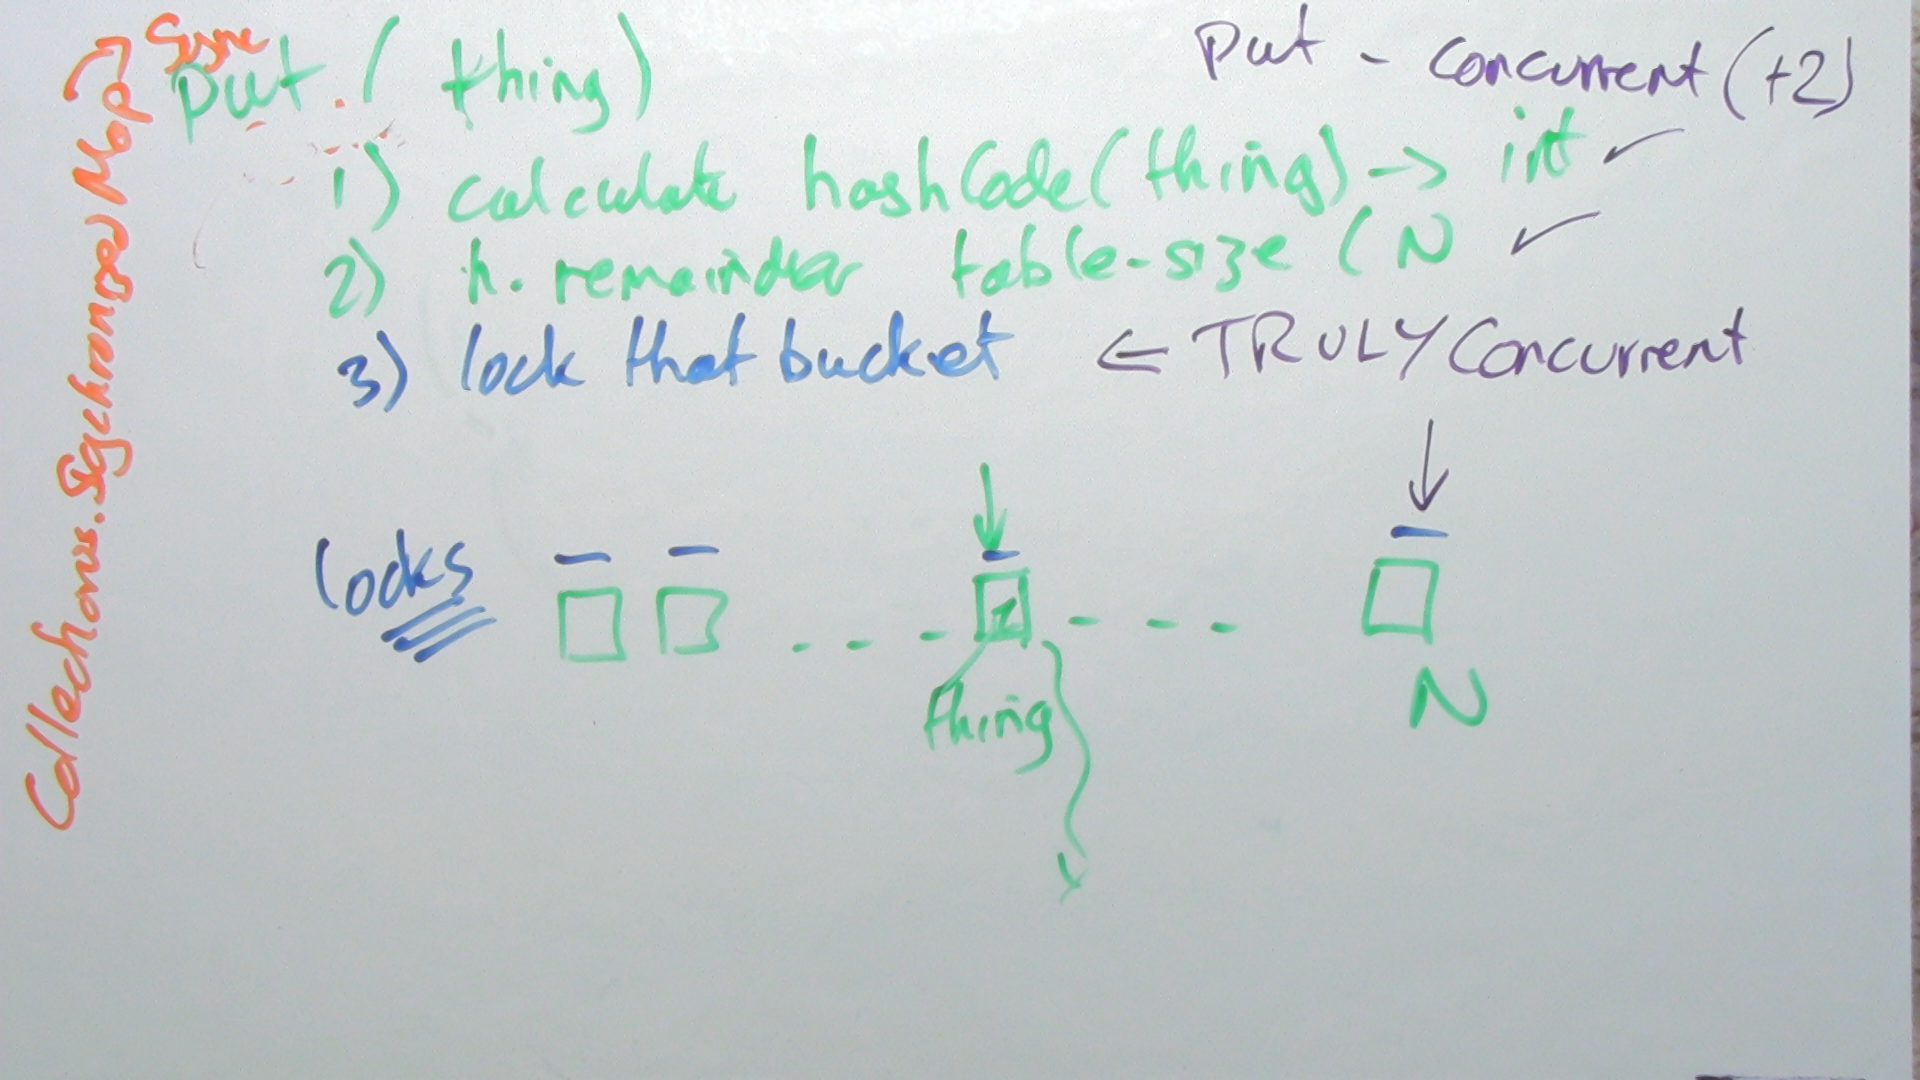 Collections.SychronizedMap
Sync
put. (thing)
put - concurrent (+2)
1) calculate hashCode(thing) -> int ✓
2) h. remainder table-size (N ✓
3) lock that bucket ← TRULY Concurrent
locks
thing
N